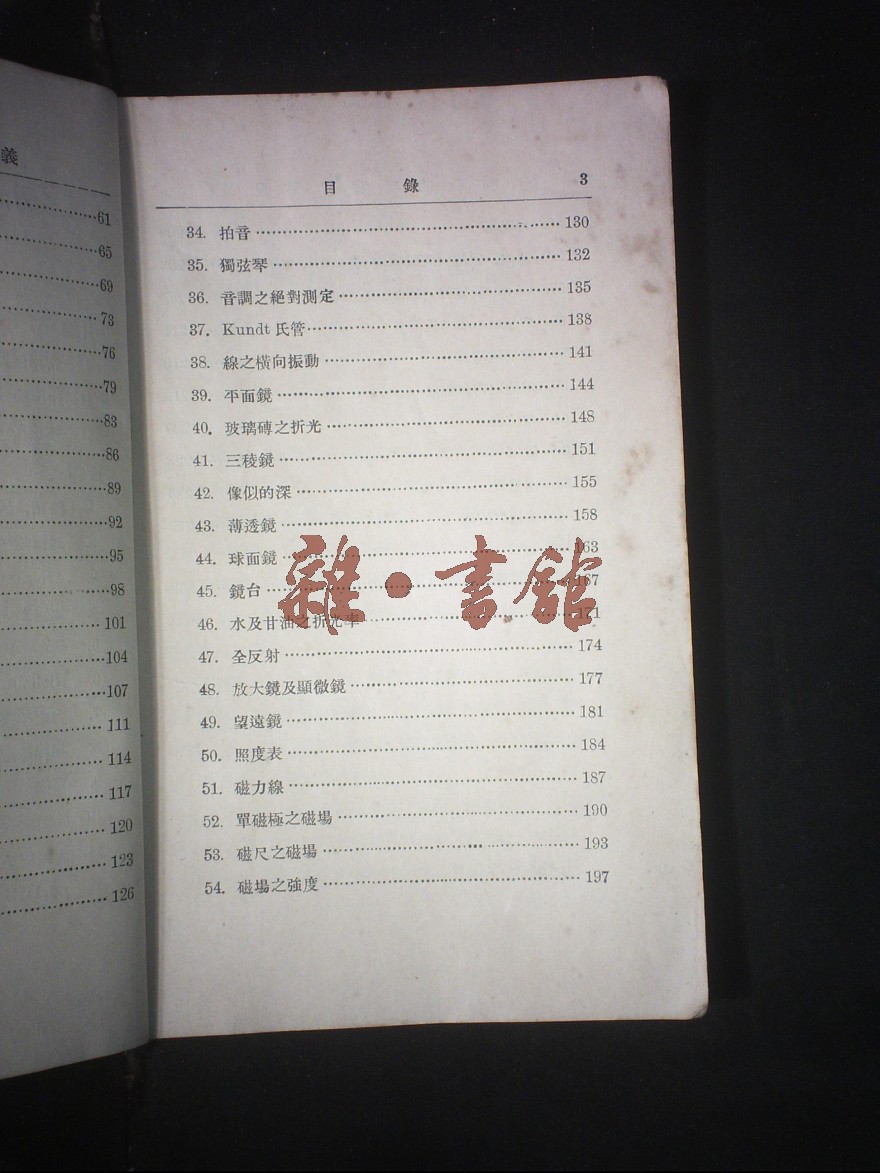 義
61
65
69
73
76
79
83
86
89
92
95
98
101
104
107
111
114
117
120
123
126
目 錄 3
34. 拍音 130
35. 獨弦琴 132
36. 音調之絕對測定 135
37. Kundt 氏管 138
38. 線之橫向振動 141
39. 平面鏡 144
40. 玻璃磚之折光 148
41. 三稜鏡 151
42. 像似的深 155
43. 薄透鏡 158
44. 球面鏡 163
45. 鏡台 167
46. 水及甘油之折光率 171
47. 全反射 174
48. 放大鏡及顯微鏡 177
49. 望遠鏡 181
50. 照度表 184
51. 磁力線 187
52. 單磁極之磁場 190
53. 磁尺之磁場 193
54. 磁場之強度 197
雜·書館